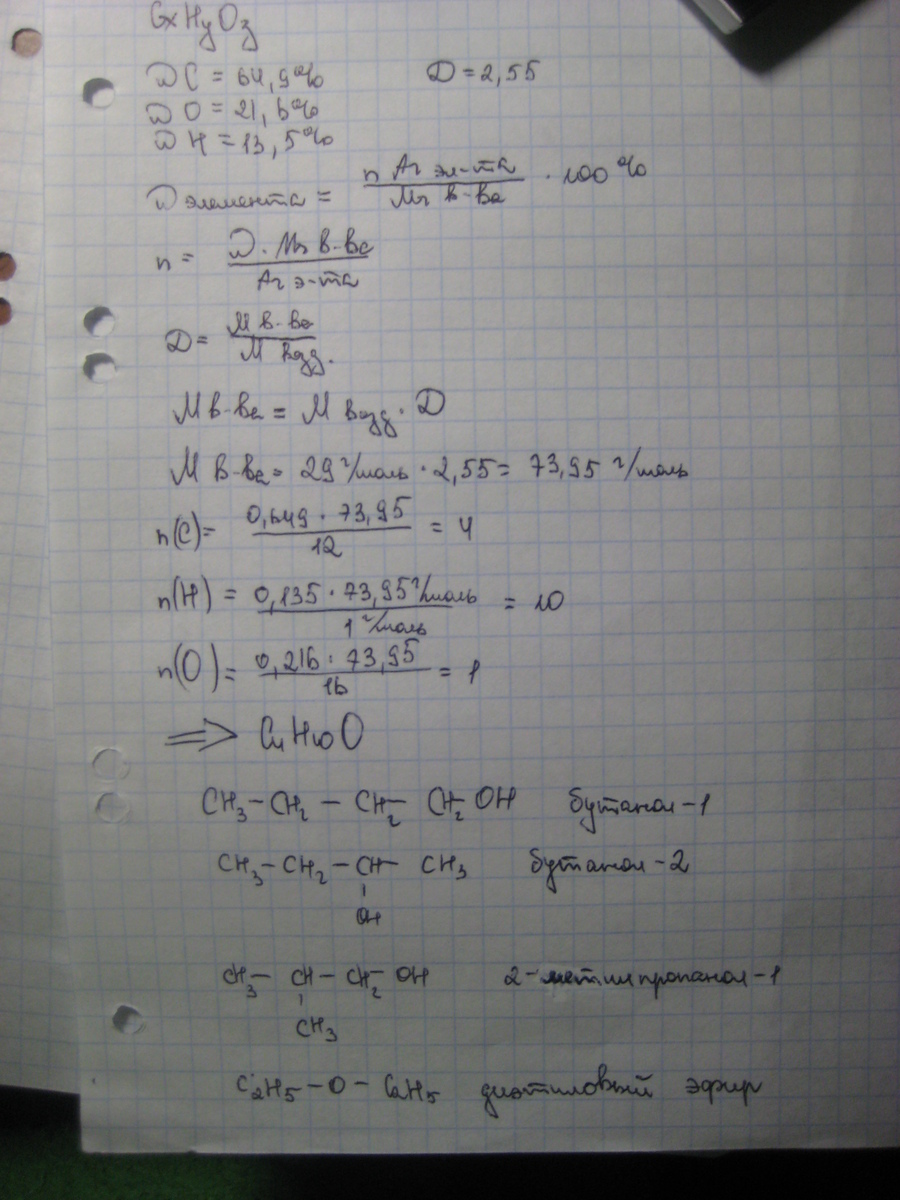 CxHyOz
ωC = 64,9% D = 2,55
ωO = 21,6%
ωH = 13,5%
ω элемента = n Ar эл-та / Mr в-ва · 100%
n = ω · Mr в-ва / Ar э-та
D = M в-ва / M возд.
M в-ва = M возд · D
M в-ва = 29 г/моль · 2,55 = 73,95 г/моль
n(C) = 0,649 · 73,95 / 12 = 4
n(H) = 0,135 · 73,95 г/моль / 1 г/моль = 10
n(O) = 0,216 · 73,95 / 16 = 1
⇒ C4H10O
CH3 – CH2 – CH2 – CH2 OH бутанол-1
CH3 – CH2 – CH – CH3 бутанол-2
OH
CH3 – CH – CH2 – OH 2-метилпропанол-1
CH3
C2H5 – O – C2H5 диэтиловый эфир